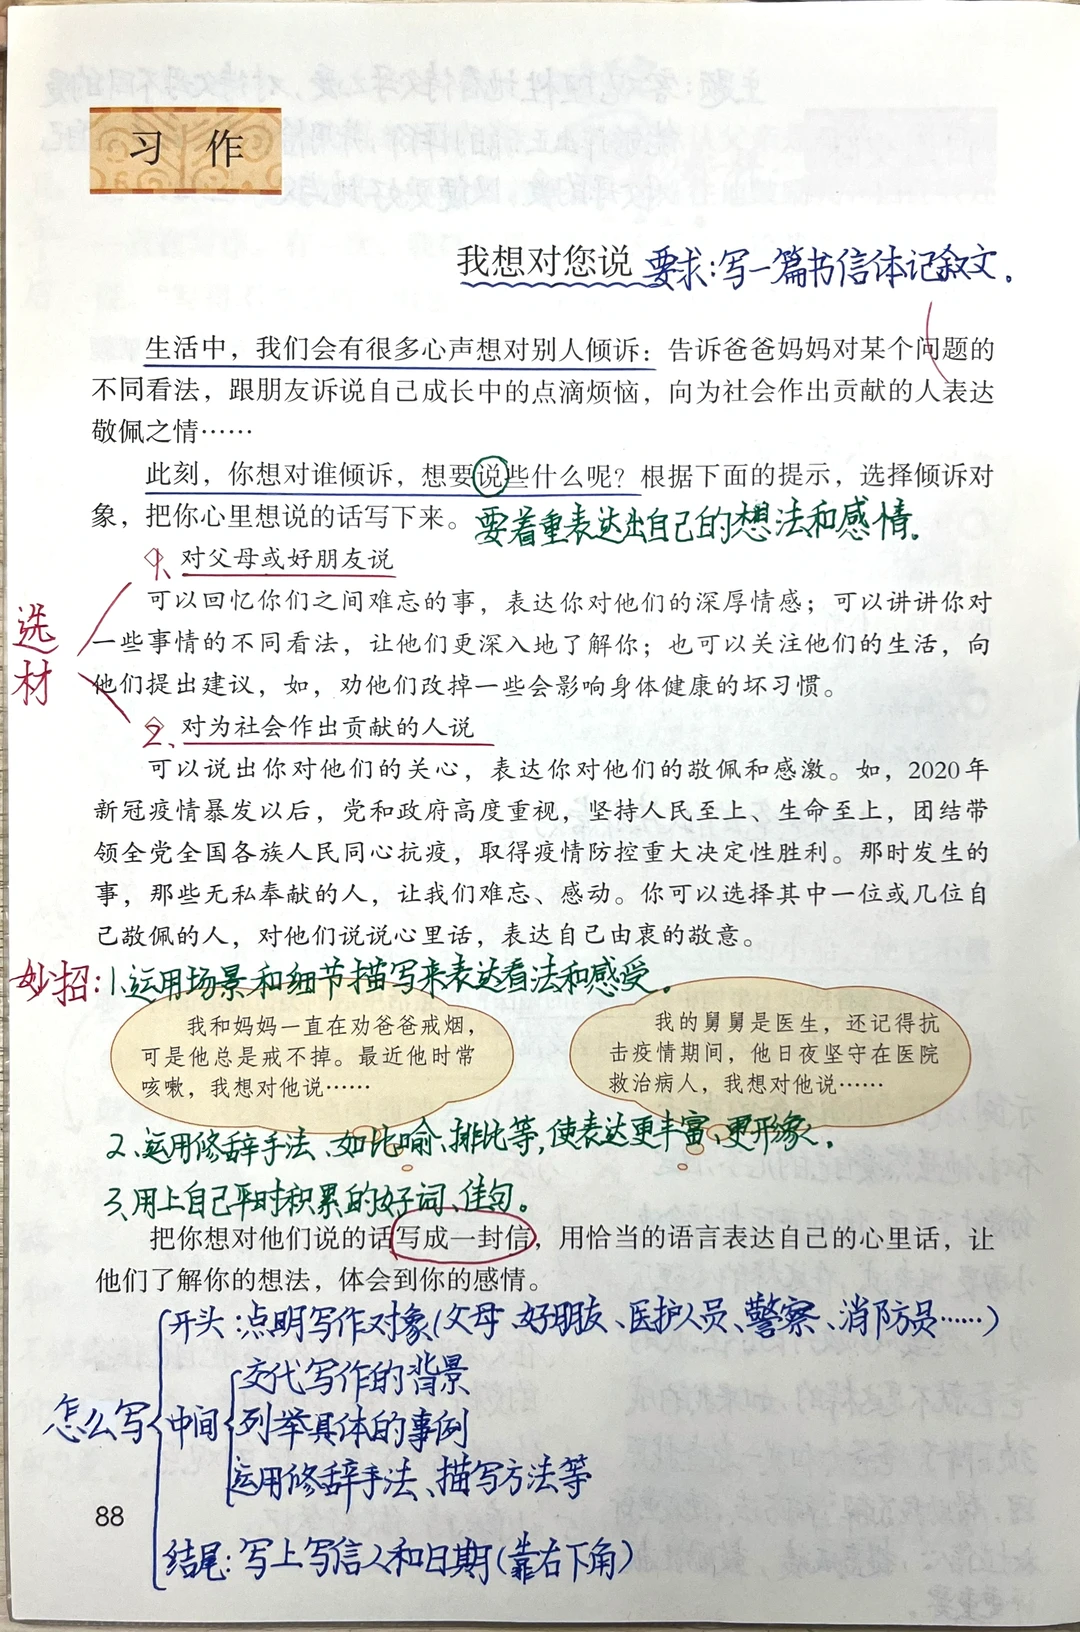 习 作
我想对您说 要求：写一篇书信体记叙文。
生活中，我们会有很多心声想对别人倾诉：告诉爸爸妈妈对某个问题的
不同看法，跟朋友诉说自己成长中的点滴烦恼，向为社会作出贡献的人表达
敬佩之情……
此刻，你想对谁倾诉，想要说些什么呢？根据下面的提示，选择倾诉对
象，把你心里想说的话写下来。 要着重表达出自己的想法和感情。
1、对父母或好朋友说
可以回忆你们之间难忘的事，表达你对他们的深厚情感；可以讲讲你对
选材
一些事情的不同看法，让他们更深入地了解你；也可以关注他们的生活，向
他们提出建议，如，劝他们改掉一些会影响身体健康的坏习惯。
2、对为社会作出贡献的人说
可以说出你对他们的关心，表达你对他们的敬佩和感激。如，2020年
新冠疫情暴发以后，党和政府高度重视，坚持人民至上、生命至上，团结带
领全党全国各族人民同心抗疫，取得疫情防控重大决定性胜利。那时发生的
事，那些无私奉献的人，让我们难忘、感动。你可以选择其中一位或几位自
己敬佩的人，对他们说说心里话，表达自己由衷的敬意。
妙招：1、运用场景和细节描写来表达看法和感受。
我和妈妈一直在劝爸爸戒烟，
可是他总是戒不掉。最近他时常
咳嗽，我想对他说……
我的舅舅是医生，还记得抗
击疫情期间，他日夜坚守在医院
救治病人，我想对他说……
2、运用修辞手法、如比喻、排比等，使表达更丰富、更形象。
3、用上自己平时积累的好词、佳句。
把你想对他们说的话写成一封信，用恰当的语言表达自己的心里话，让
他们了解你的想法，体会到你的感情。
开头：点明写作对象（父母、好朋友、医护人员、警察、消防员……）
交代写作的背景
怎么写 中间 列举具体的事例
运用修辞手法、描写方法等
88
结尾：写上写信人和日期（靠右下角）